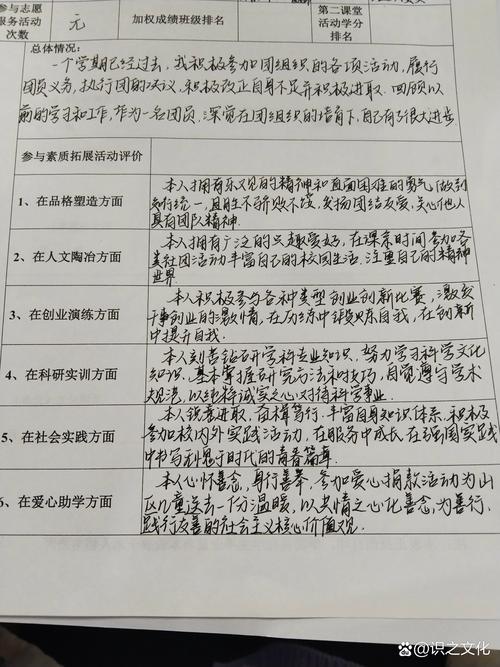 参与志愿
服务活动
次数
无
加权成绩班级排名
第二课堂
活动学分
排名
总体情况:
一个学期已经过去,我积极参加团组织的各项活动,履行
团员义务,执行团的决议,积极改正自身不足并积极进取。回顾以
前的学习和工作,作为一名团员,深觉在团组织的培育下,自己有了很大进步。
参与素质拓展活动评价
1、在品格塑造方面
本人拥有乐观的精神和直面困难的勇气,做到
知行统一,且胜不骄败不馁,发扬团结友爱,关心他人
具有团队精神.
2、在人文陶冶方面
本人拥有广泛的兴趣爱好,在课余时间参加各
类社团活动丰富自己的校园生活,注重自己的精神
世界.
3、在创业演练方面
本人积极参与各种类型创业创新比赛,激发
干事创业的激情,在历练中锻炼自我,在创新
中提升自我.
4、在科研实训方面
本人刻苦钻研学科专业知识,努力学习科学文化
知识,基本掌握研究方法和技巧,自觉遵守学术
规范,以纯粹诚实之心对待科学事业.
5、在社会实践方面
本人锐意进取,直情笃行,丰富自身知识体系,积极
参加校内外实践活动,在服务中成长,在强国实践
中书写无愧于时代的青春篇章.
6、在爱心助学方面
本人心怀善念,身行善举,参加爱心捐款活动为山
区儿童送去一个分温暖,以共情之心化善念,为善行,
践行友善的社会主义核心价值观.
识之文化